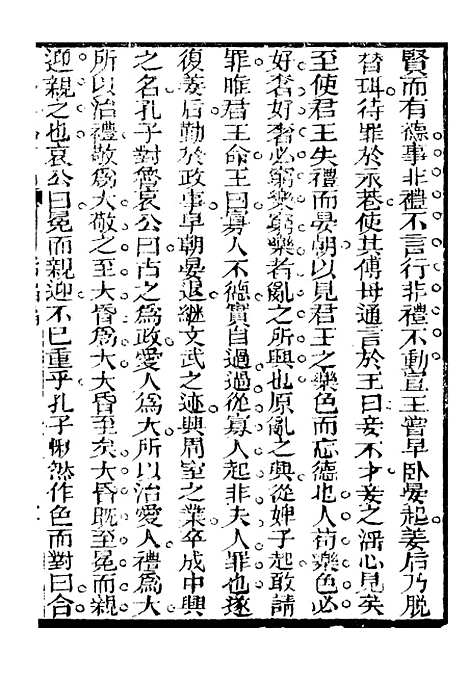 賢而有德事非禮不言行非禮不動宣王嘗早臥晏起姜后乃脫
替珥待罪於永巷使其傅母通言於王曰妾不才妾之淫心見矣
至使君王失禮而晏朝以見君王之樂色而忘德也人苟樂色必
好奢好奢必窮樂窮樂者亂之所興也原亂之興從婢子起敢請
罪唯君王命王曰寡人不德實自過過從寡人起非夫人罪也遂
復姜后勤於政事早朝晏退繼文武之迹興周室之業卒成中興
之名孔子對魯哀公曰古之爲政愛人爲大所以治愛人禮爲大
所以治禮敬爲大敬之至大昏爲大大昏至矣大昏既至冕而親
迎親之也哀公曰冕而親迎不已重乎孔子愀然作色而對曰合